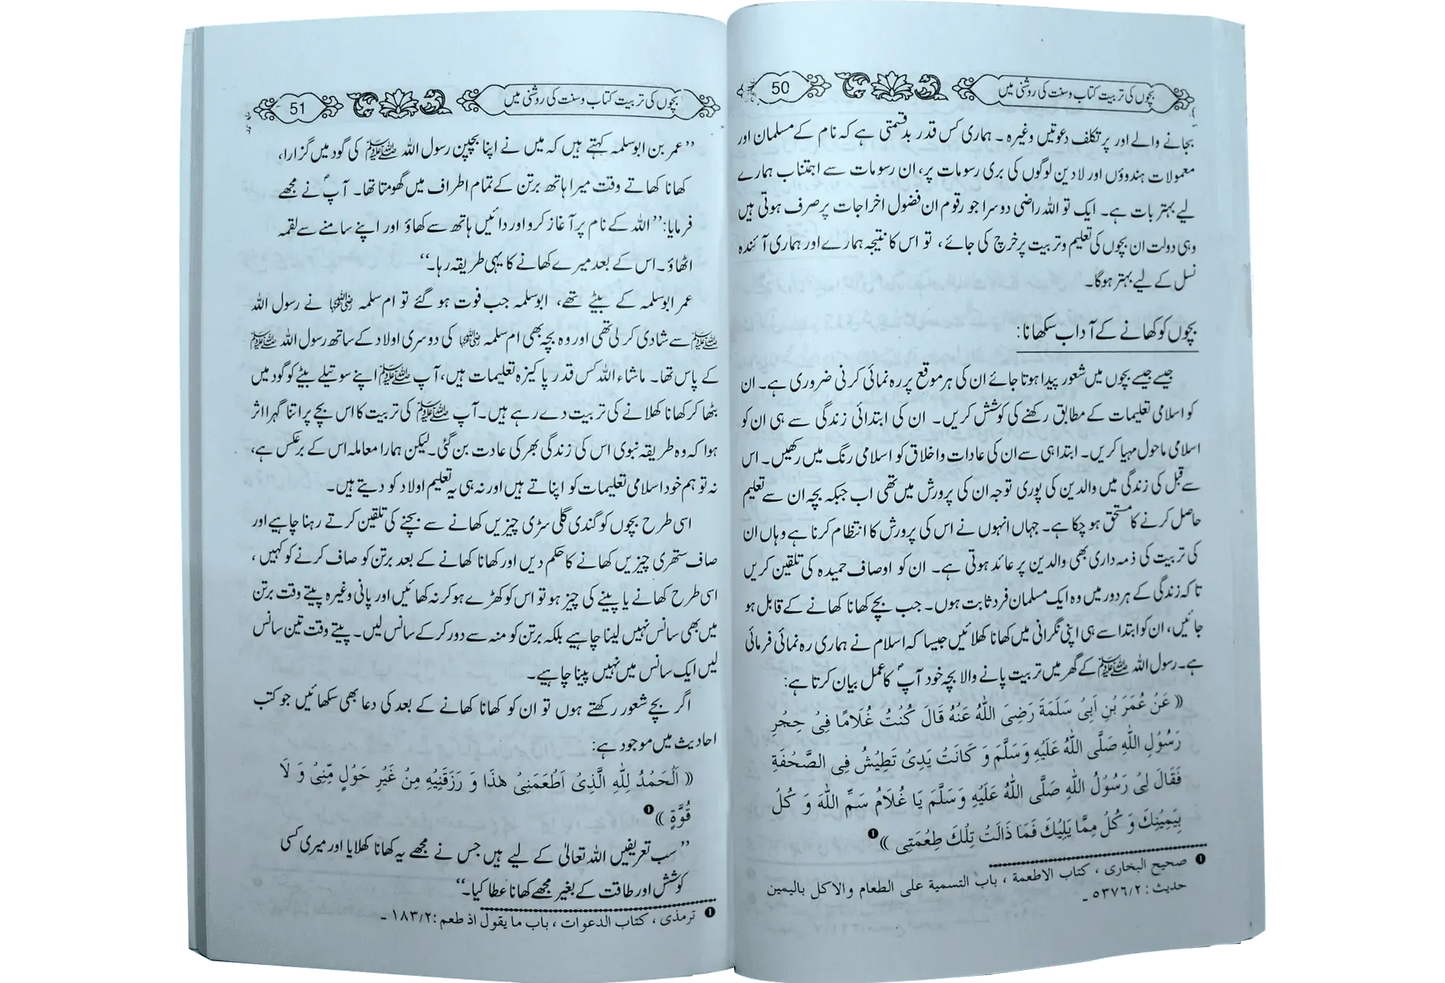 بچوں کی تربیت کتاب و سنت کی روشنی میں
50
بجانے والے اور پر تکلف دعوتیں وغیرہ۔ ہماری کس قدر بدقسمتی ہے کہ نام کے مسلمان اور
معمولات ہندوؤں اور لادین لوگوں کی بری رسومات پر، ان رسومات سے اجتناب ہمارے
لیے بہتر بات ہے۔ ایک تو اللہ راضی دوسرا جو رقوم ان فضول اخراجات پر صرف ہوتی ہیں
وہی دولت ان بچوں کی تعلیم و تربیت پر خرچ کی جائے، تو اس کا نتیجہ ہمارے اور ہماری آئندہ
نسل کے لیے بہتر ہوگا۔
بچوں کو کھانے کے آداب سکھانا:
جیسے جیسے بچوں میں شعور پیدا ہوتا جائے ان کی ہر موقع پر رہ نمائی کرنی ضروری ہے۔ ان
کو اسلامی تعلیمات کے مطابق رکھنے کی کوشش کریں۔ ان کی ابتدائی زندگی سے ہی ان کو
اسلامی ماحول مہیا کریں۔ ابتدا ہی سے ان کی عادات و اخلاق کو اسلامی رنگ میں رکھیں۔ اس
سے قبل کی زندگی میں والدین کی پوری توجہ ان کی پرورش میں تھی اب جبکہ بچہ ان سے تعلیم
حاصل کرنے کا مستحق ہو چکا ہے۔ جہاں انہوں نے اس کی پرورش کا انتظام کرنا ہے وہاں ان
کی تربیت کی ذمہ داری بھی والدین پر عائد ہوتی ہے۔ ان کو اوصاف حمیدہ کی تلقین کریں
تاکہ زندگی کے ہر دور میں وہ ایک مسلمان فرد ثابت ہوں۔ جب بچے کھانا کھانے کے قابل ہو
جائیں، ان کو ابتدا سے ہی اپنی نگرانی میں کھانا کھلائیں جیسا کہ اسلام نے ہماری رہ نمائی فرمائی
ہے۔ رسول اللہ ﷺ کے گھر میں تربیت پانے والا بچہ خود آپؐ کا عمل بیان کرتا ہے:
﴿عَنْ عُمَرَ بْنِ اَبِیْ سَلَمَةَ رَضِیَ اللّٰهُ عَنْهُ قَالَ كُنْتُ غُلَامًا فِیْ حِجْرِ
رَسُوْلِ اللّٰهِ صَلَّی اللّٰهُ عَلَیْهِ وَسَلَّمَ وَ كَانَتْ یَدِیْ تَطِیْشُ فِی الصَّحْفَةِ
فَقَالَ لِیْ رَسُوْلُ اللّٰهِ صَلَّی اللّٰهُ عَلَیْهِ وَسَلَّمَ یَا غُلَامُ سَمِّ اللّٰهَ وَ كُلْ
بِیَمِیْنِكَ وَ كُلْ مِمَّا یَلِیْكَ فَمَا ذَالَتْ تِلْكَ طِعْمَتِی﴾ ❶
❶ صحیح البخاری، کتاب الاطعمة، باب التسمیة علی الطعام والاکل بالیمین
حدیث: ٥٣٧٦/٢ ۔
بچوں کی تربیت کتاب و سنت کی روشنی میں
51
’’عمر بن ابوسلمہ کہتے ہیں کہ میں نے اپنا بچپن رسول اللہ ﷺ کی گود میں گزارا،
کھانا کھاتے وقت میرا ہاتھ برتن کے تمام اطراف میں گھومتا تھا۔ آپؐ نے مجھے
فرمایا: ’’اللہ کے نام پر آغاز کرو اور دائیں ہاتھ سے کھاؤ اور اپنے سامنے سے لقمہ
اٹھاؤ۔ اس کے بعد میرے کھانے کا یہی طریقہ رہا۔‘‘
عمر ابوسلمہ کے بیٹے تھے، ابوسلمہ جب فوت ہو گئے تو ام سلمہ رضی اللہ عنہا نے رسول اللہ
ﷺ سے شادی کر لی تھی اور وہ بچہ بھی ام سلمہ رضی اللہ عنہا کی دوسری اولاد کے ساتھ رسول اللہ ﷺ
کے پاس تھا۔ ماشاء اللہ کس قدر پاکیزہ تعلیمات ہیں، آپ ﷺ اپنے سوتیلے بیٹے کو گود میں
بٹھا کر کھانا کھلانے کی تربیت دے رہے ہیں۔ آپ ﷺ کی تربیت کا اس بچے پر اتنا گہرا اثر
ہوا کہ وہ طریقہ نبوی اس کی زندگی بھر کی عادت بن گئی۔ لیکن ہمارا معاملہ اس کے برعکس ہے،
نہ تو ہم خود اسلامی تعلیمات کو اپناتے ہیں اور نہ ہی یہ تعلیم اولاد کو دیتے ہیں۔
اسی طرح بچوں کو گندی گلی سڑی چیزیں کھانے سے بچنے کی تلقین کرتے رہنا چاہیے اور
صاف ستھری چیزیں کھانے کا حکم دیں اور کھانا کھانے کے بعد برتن کو صاف کرنے کو کہیں،
اسی طرح کھانے یا پینے کی چیز ہو تو اس کو کھڑے ہو کر نہ کھائیں اور پانی وغیرہ پیتے وقت برتن
میں بھی سانس نہیں لینا چاہیے بلکہ برتن کو منہ سے دور کر کے سانس لیں۔ پیتے وقت تین سانس
لیں ایک سانس میں نہیں پینا چاہیے۔
اگر بچے شعور رکھتے ہوں تو ان کو کھانا کھانے کے بعد کی دعا بھی سکھائیں جو کتب
احادیث میں موجود ہے:
﴿اَلْحَمْدُ لِلّٰهِ الَّذِیْ اَطْعَمَنِیْ هٰذَا وَ رَزَقَنِیْهِ مِنْ غَیْرِ حَوْلٍ مِّنِّیْ وَ لَا
قُوَّةٍ﴾ ❶
’’سب تعریفیں اللہ تعالیٰ کے لیے ہیں جس نے مجھے یہ کھانا کھلایا اور میری کسی
کوشش اور طاقت کے بغیر مجھے کھانا عطا کیا۔‘‘
❶ ترمذی، کتاب الدعوات، باب ما یقول اذ طعم: ١٨٣/٢ ۔